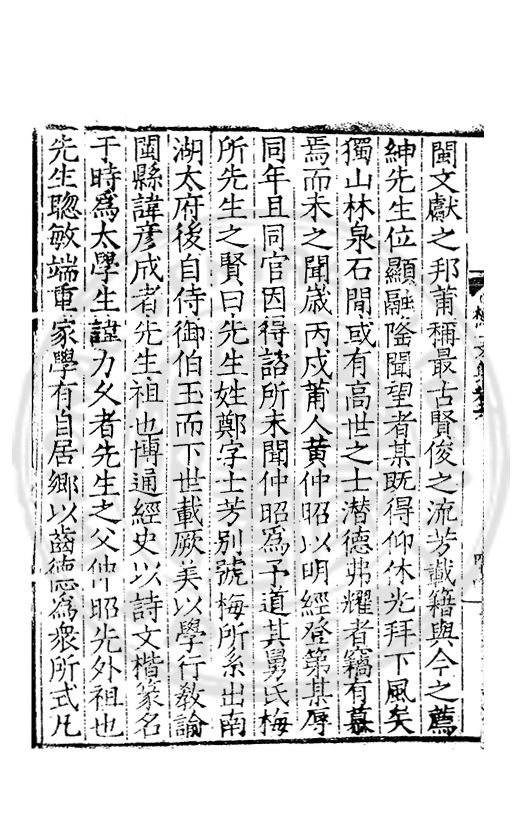 閩文獻之邦莆稱最古賢俊之流芳載籍與今之薦
紳先生位顯融隆聞望者某既得仰休光拜下風矣
獨山林泉石間或有高世之士潜德弗耀者竊有慕
焉而未之聞歲丙戍莆人黄仲昭以明經登第某辱
同年且同官因得諮所未聞仲昭為予道其舅氏梅
所先生之賢曰先生姓鄭字士芳别號梅所系出南
湖太府後自侍御伯玉而下世載厥美以學行教諭
閩縣諱彦成者先生祖也博通經史以詩文楷篆名
于時為太學生諱力父者先生之父仲昭先外祖也
先生聰敏端重家學有自居鄉以齒德為衆所式凡